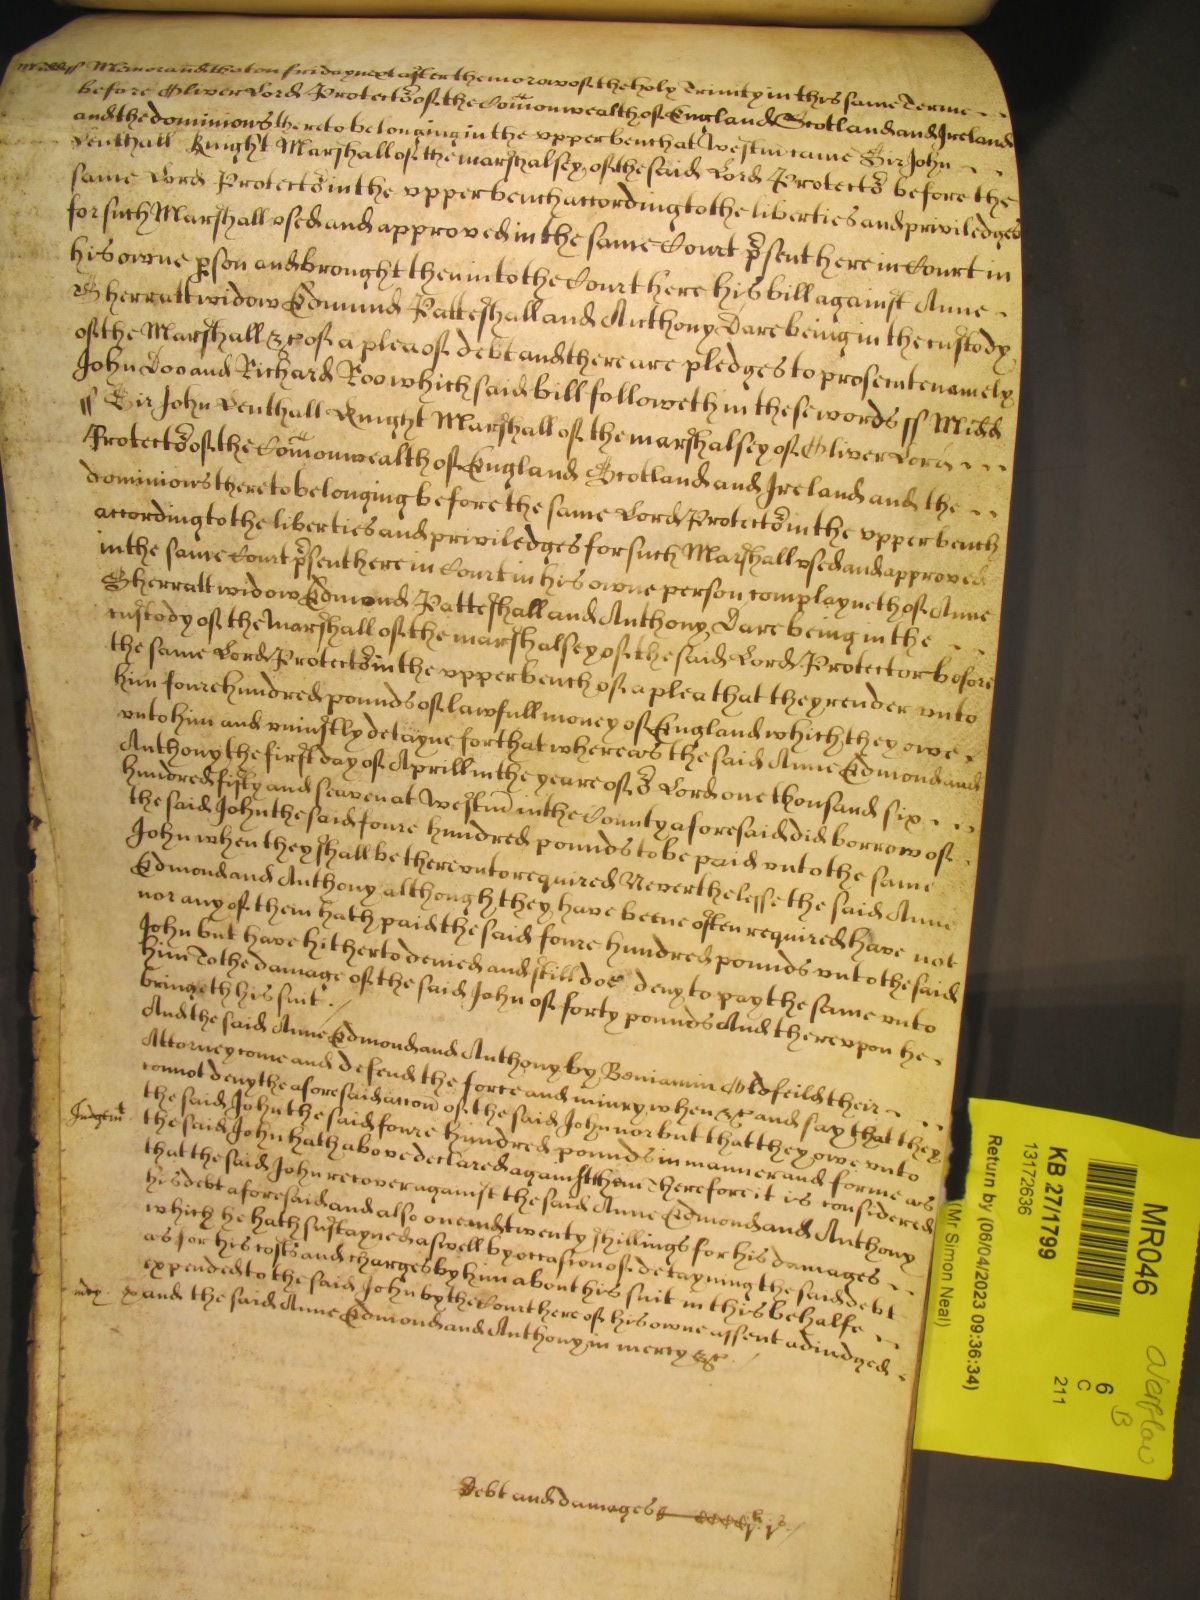 Midd ss Memorand that on friday next after the morow of the holy Trinity in this same Terme
before Oliver Lord Protector of the Comonwealth of England Scotland and Ireland
and the dominions thereto belonging in the upper bench at Westm came Sir John
Lenthall Knight Marshall of the marshalsey of the said Lord Protector before the
same Lord Protector in the upper bench according to the liberties and priviledges
for such Marshall used and approved in the same Court psent here in Court in
his owne pson and brought then into the Court here his bill against Anne
Sherratt widow Edmund Patteshall and Anthony Dare being in the custody
of the Marshall &c of a plea of debt and there are pledges to prosecute namely
John Doo and Richard Roo which said bill followeth in these words ss Midd
ss Sir John Lenthall Knight Marshall of the marshalsey of Oliver Lord
Protector of the Comonwealth of England Scotland and Ireland and the
dominions thereto belonging before the same Lord Protector in the upper bench
according to the liberties and priviledges for such Marshall used and approved
in the same Court psent here in Court in his owne person complayneth of Anne
Sherratt widow Edmond Patteshall and Anthony Dare being in the
custody of the Marshall of the marshalsey of the said Lord Protector before
the same Lord Protector in the upper bench of a plea that they render unto
him foure hundred pounds of lawfull money of England which they owe
unto him and uniustly detayne for that whereas the said Anne Edmond and
Anthony the first day of Aprill in the yeare of or Lord one thousand six
hundred fifty and seaven at Westm in the County aforesaid did borrow of
the said John the said foure hundred pounds to be paid unto the same
John when they shall be thereunto required Neverthelesse the said Anne
Edmond and Anthony although they have beene often required have not
nor any of them hath paid the said foure hundred pounds unto the said
John but have hitherto denied and still doe deny to pay the same unto
him To the damage of the said John of forty pounds And thereupon he
bringeth his suit
And the said Anne Edmond and Anthony by Beniamin Oldfeild their
Attorney come and defend the force and iniury when &c and say that they
connot deny the aforesaid accon of the said John nor but that they owe unto
the said John the said foure hundred pounds in manner and forme as
Judgemt
the said John hath above declared against them Therefore it is considered
that the said John recover against the said Anne Edmond and Anthony
his debt aforesaid and also one and twenty shillings for his damages
which he hath sustayned aswell by occasion of detayning the said debt
as for his costs and charges by him about his suit in this behalfe
expended to the said John by the Court here of his owne assent adiudged
mcy
and the said Anne Edmond and Anthony in mercy &c
Debt and damages
MR046
KB 27/1799
13172636
Return by (06/04/2023 09:36:34)
(Mr Simon Neal)
6
C
211
Overflow
B